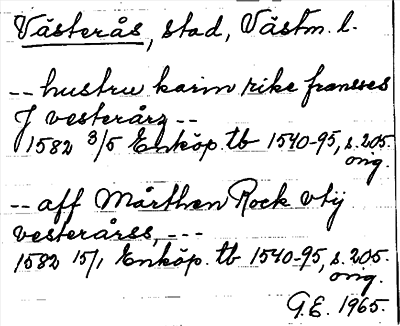 Västerås, stad, Västm. l.
-- hustru karin rike fransses
J vesterårs --
1582 3/5 Enköp. tb 1540-95, s. 205.
orig.
-- aff Mårthen Rock vtij
vesterårss, ---
1582 15/1 Enköp. tb 1540-95, s. 205.
orig.
G.E. 1965.